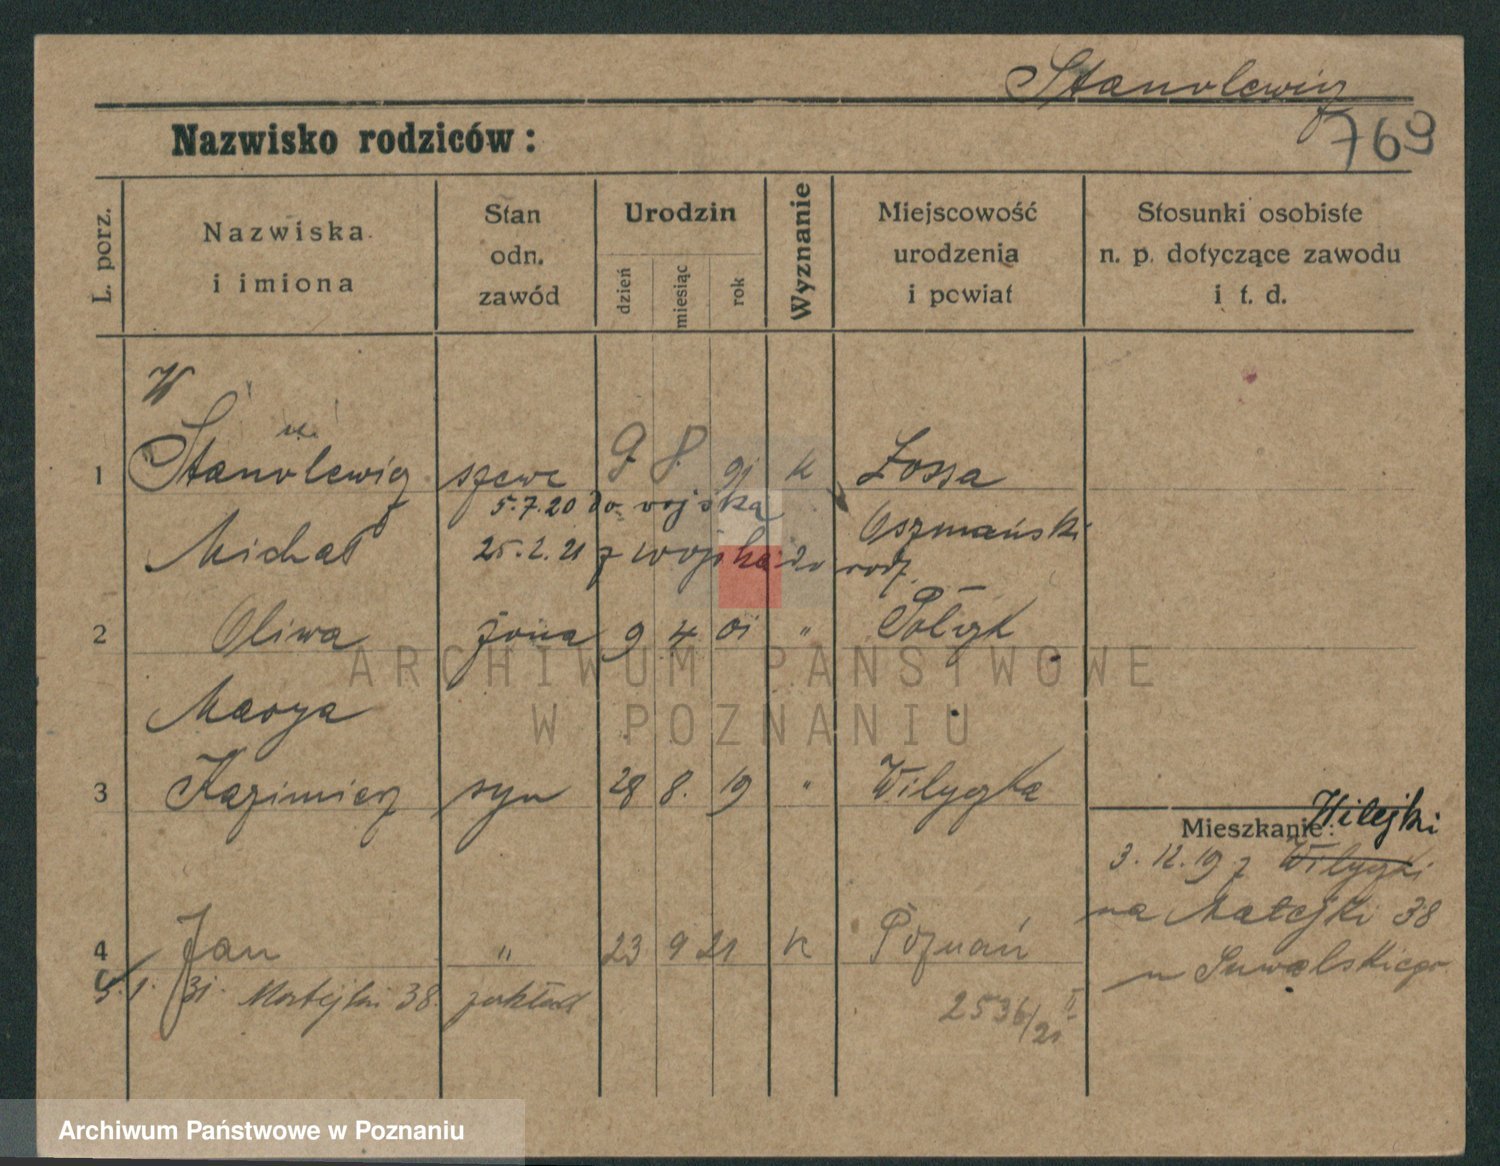 Stanolewicz
769
Nazwisko rodziców:
L. porz.
Nazwiska i imiona
Stan odn. zawód
Urodzin
dzień
miesiąc
rok
Wyznanie
Miejscowość urodzenia i powiat
Stosunki osobiste n. p. dotyczące zawodu i t. d.
W
1 Stanolewicz szewc 9 8. 91 k Zossa
5.7.20 do wojska Oszmański
Michał 25.2.21 z wojska do rodz.
2 Oliwa żona 9 4 01 "
Marya
3 Kazimierz syn 28 8. 19 " Wilyczka
Mieszkanie: Wilejki
3.12.19 z Wilyczki
na Matejki 38
u Suwalskiego
4 Jan " 23 9 21 k Poznań
5.1.31. Matejki 38. zakład
2536/21 II
ARCHIWUM PAŃSTWOWE
W POZNANIU
Archiwum Państwowe w Poznaniu